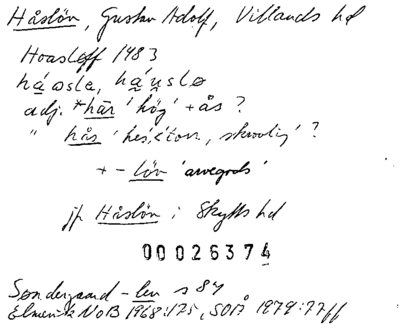 Håslöv, Gustav Adolf, Villands hd
Hoasleff 1483
håosla, háuslø
adj. *hār 'hög' + ås ?
" hås 'hes, skrovlig' ?
+ - löv 'arvegods'
jfr Håslöv i Skytts hd
00026374
Søndergaard - lev s 84
Elmevik NoB 1968:175, SOÅ 1979:77ff